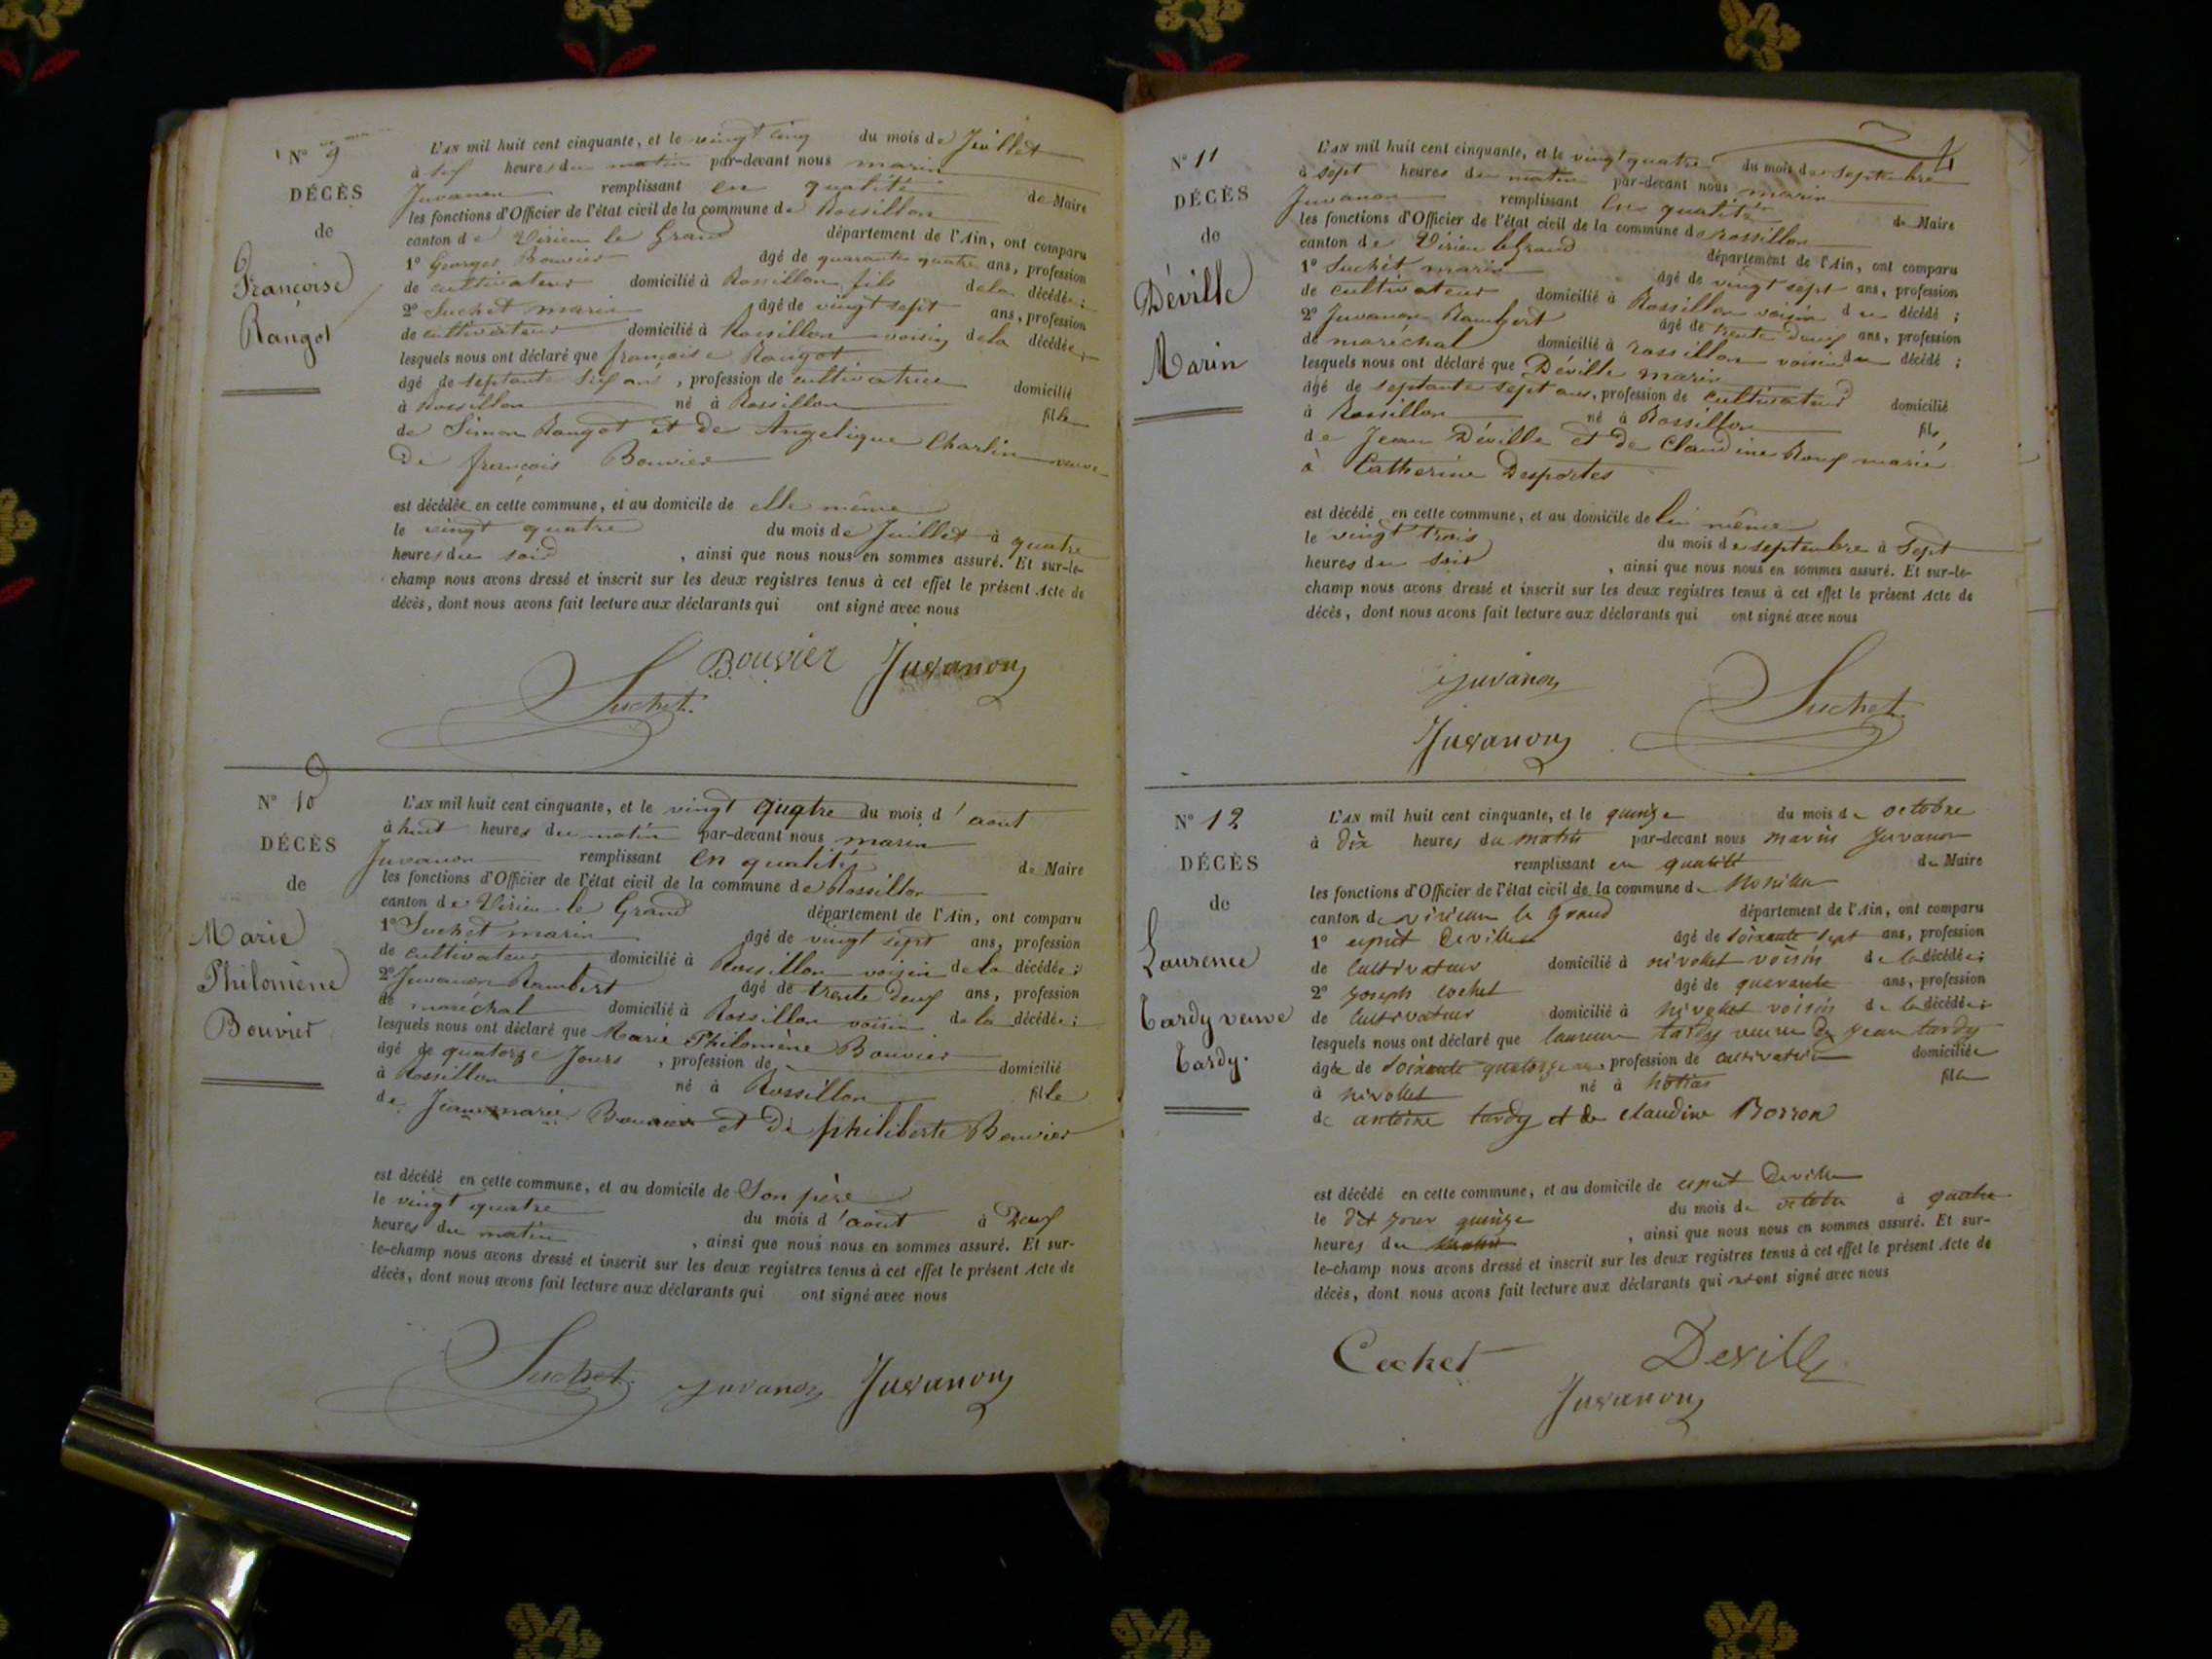 N° 9
DÉCÈS
de
Françoise
Rangot
L'AN mil huit cent cinquante, et le vingt cinq du mois de Juillet
à six heures du matin par-devant nous marin
Juvanon remplissant en qualité de Maire
les fonctions d'Officier de l'état civil de la commune de Rossillon
canton de Virieu le Grand département de l'Ain, ont comparu
1° Georges Bouvier âgé de quarante quatre ans, profession
de cultivateur domicilié à Rossillon fils de la décédée;
2° Suchet marin âgé de vingt sept ans, profession
de cultivateur domicilié à Rossillon voisin de la décédée;
lesquels nous ont déclaré que françoise Rangot
âgé de septante six ans, profession de cultivatrice domicilié
à Rossillon né à Rossillon fille
de Simon Rangot et de Angelique Charlin veuve
De françois Bouvier
est décédée en cette commune, et au domicile de elle même
le vingt quatre du mois de Juillet à quatre
heures du soir, ainsi que nous nous en sommes assuré. Et sur-le-
champ nous avons dressé et inscrit sur les deux registres tenus à cet effet le présent Acte de
décès, dont nous avons fait lecture aux déclarants qui ont signé avec nous
Bouvier Juvanon
Suchet
N° 10
DÉCÈS
de
Marie
Philomène
Bouvier
L'AN mil huit cent cinquante, et le vingt quatre du mois d'aout
à huit heures du matin par-devant nous marin
Juvanon remplissant en qualité de Maire
les fonctions d'Officier de l'état civil de la commune de Rossillon
canton de Virieu le Grand département de l'Ain, ont comparu
1° Suchet marin âgé de vingt sept ans, profession
de cultivateur domicilié à Rossillon voisin de la décédée;
2° Juvanon Rambert âgé de trente deux ans, profession
de maréchal domicilié à Rossillon voisin de la décédée;
lesquels nous ont déclaré que Marie Philomène Bouvier
âgé de quatorze Jours, profession de domicilié
à Rossillon né à Rossillon fille
de Jean marie Bouvier et de philiberte Bouvier
est décédé en cette commune, et au domicile de Son père
le vingt quatre du mois d'aout à Deux
heures du matin, ainsi que nous nous en sommes assuré. Et sur-
le-champ nous avons dressé et inscrit sur les deux registres tenus à cet effet le présent Acte de
décès, dont nous avons fait lecture aux déclarants qui ont signé avec nous
Suchet juvanon Juvanon
N° 11
DÉCÈS
de
Déville
Marin
L'AN mil huit cent cinquante, et le vingt quatre du mois de Septembre
à sept heures du matin par-devant nous marin
Juvanon remplissant en qualité de Maire
les fonctions d'Officier de l'état civil de la commune de rossillon
canton de Virieu le Grand département de l'Ain, ont comparu
1° Suchet marin âgé de vingt sept ans, profession
de cultivateur domicilié à Rossillon voisin du décédé;
2° Juvanon Rambert âgé de trente deux ans, profession
de maréchal domicilié à rossillon voisin du décédé;
lesquels nous ont déclaré que Déville marin
âgé de septante sept ans, profession de cultivateur domicilié
à Rossillon né à Rossillon fils
de Jean Déville et de Claudine Roux marié
à Catherine Desportes
est décédé en cette commune, et au domicile de lui même
le vingt trois du mois de septembre à sept
heures du soir, ainsi que nous nous en sommes assuré. Et sur-le-
champ nous avons dressé et inscrit sur les deux registres tenus à cet effet le présent Acte de
décès, dont nous avons fait lecture aux déclarants qui ont signé avec nous
juvanon Suchet
Juvanon
N° 12
DÉCÈS
de
Laurence
Tardy veuve
Tardy.
L'AN mil huit cent cinquante, et le quinze du mois de octobre
à dix heures du matin par-devant nous marin Juvanon
remplissant en qualité de Maire
les fonctions d'Officier de l'état civil de la commune de
canton de virieu le grand département de l'Ain, ont comparu
1° esprit Deville âgé de soixante sept ans, profession
de cultivateur domicilié à nivollet voisin de la décédée;
2° joseph cochet âgé de quarante ans, profession
de cultivateur domicilié à nivollet voisin de la décédée;
lesquels nous ont déclaré que laurence tardy veuve de jean tardy
âgée de soixante quatorze ans, profession de cultivatrice domiciliée
à nivollet né à hotias fille
de antoine tardy et de claudine Borron
est décédé en cette commune, et au domicile de esprit Deville
le dit jour quinze du mois de octobre à quatre
heures du matin, ainsi que nous nous en sommes assuré. Et sur-
le-champ nous avons dressé et inscrit sur les deux registres tenus à cet effet le présent Acte de
décès, dont nous avons fait lecture aux déclarants qui ont signé avec nous
Cochet Deville
Juvanon